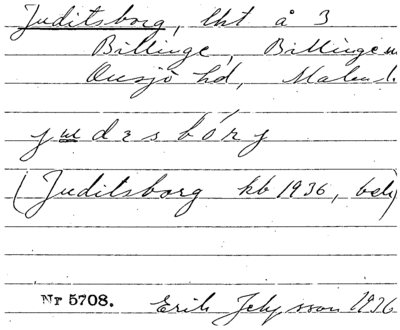 Juditsborg, lht å 3
Billinge, Billinge sn
Onsjö hd, Malm. l.
judesbórj
(Juditsborg kb 1936, beb)
Nr 5708. Erik 1936